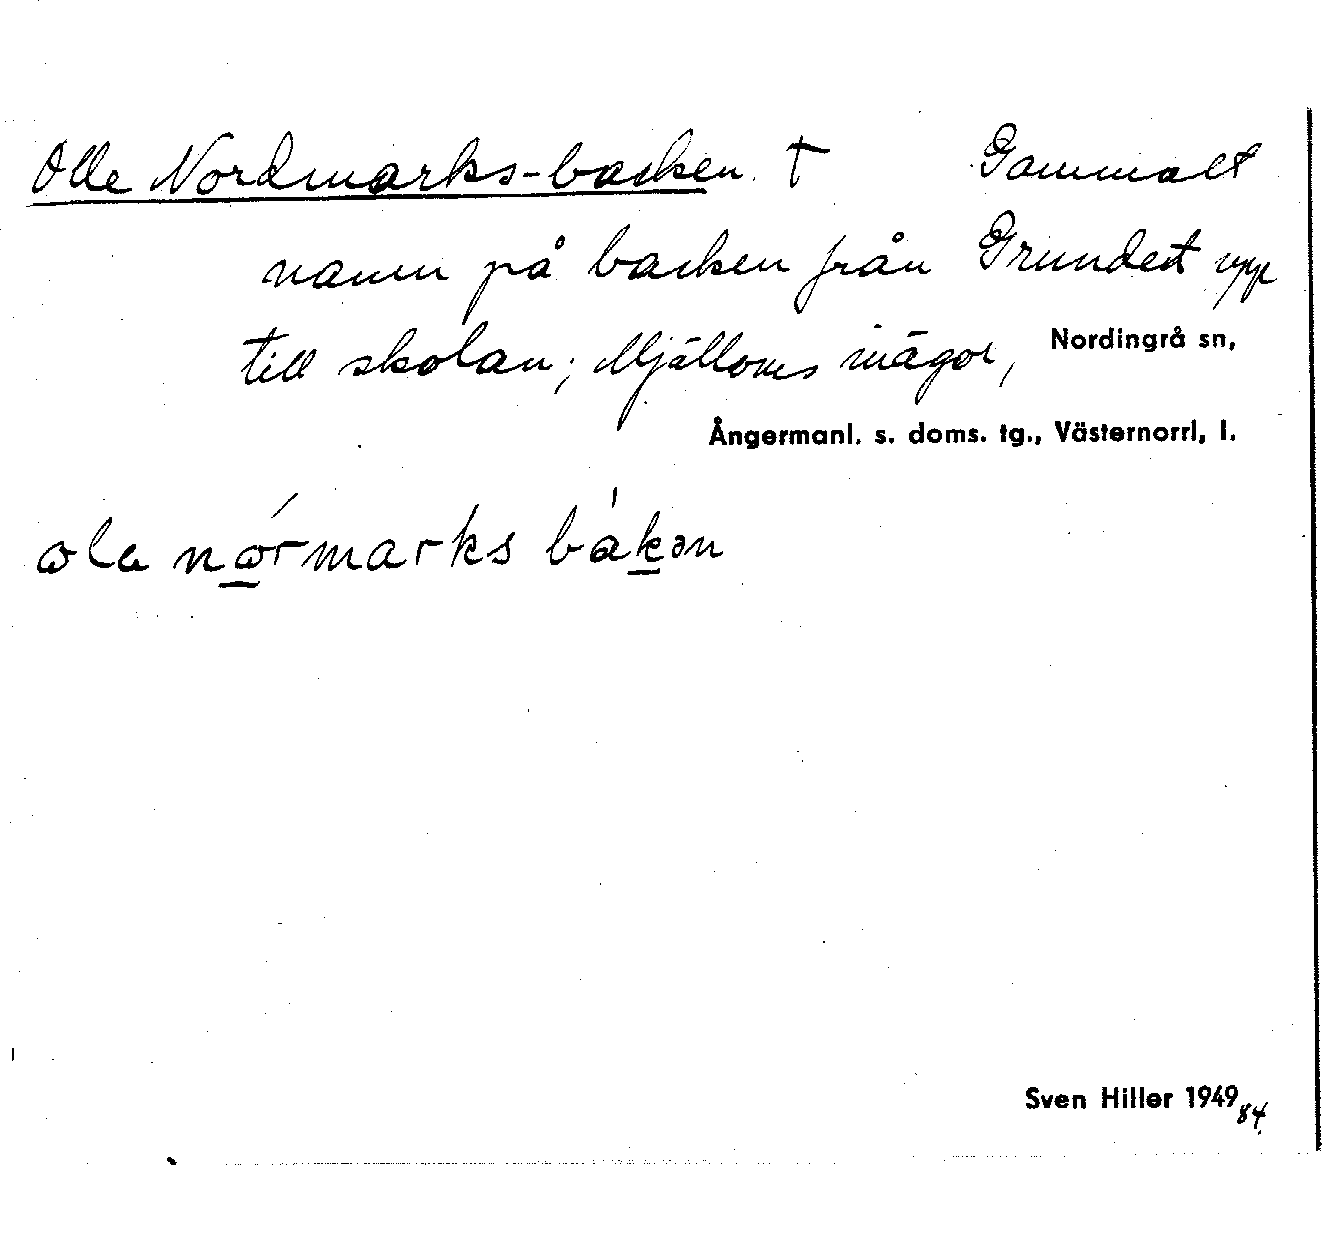 Olle Nordmarks-backen. † Gammalt
namn på backen från Grundet upp
till skolan; Mjälloms mägor, Nordingrå sn,
Ångermanl. s. doms. tg., Västernorrl. l.
ola normarks bakən
Sven Hiller 1949 84